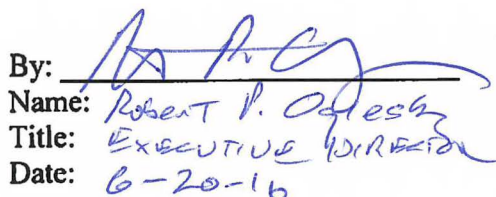 By:
Name: Robert P. Oglesby
Title: EXECUTIVE DIRECTOR
Date: 6-20-16